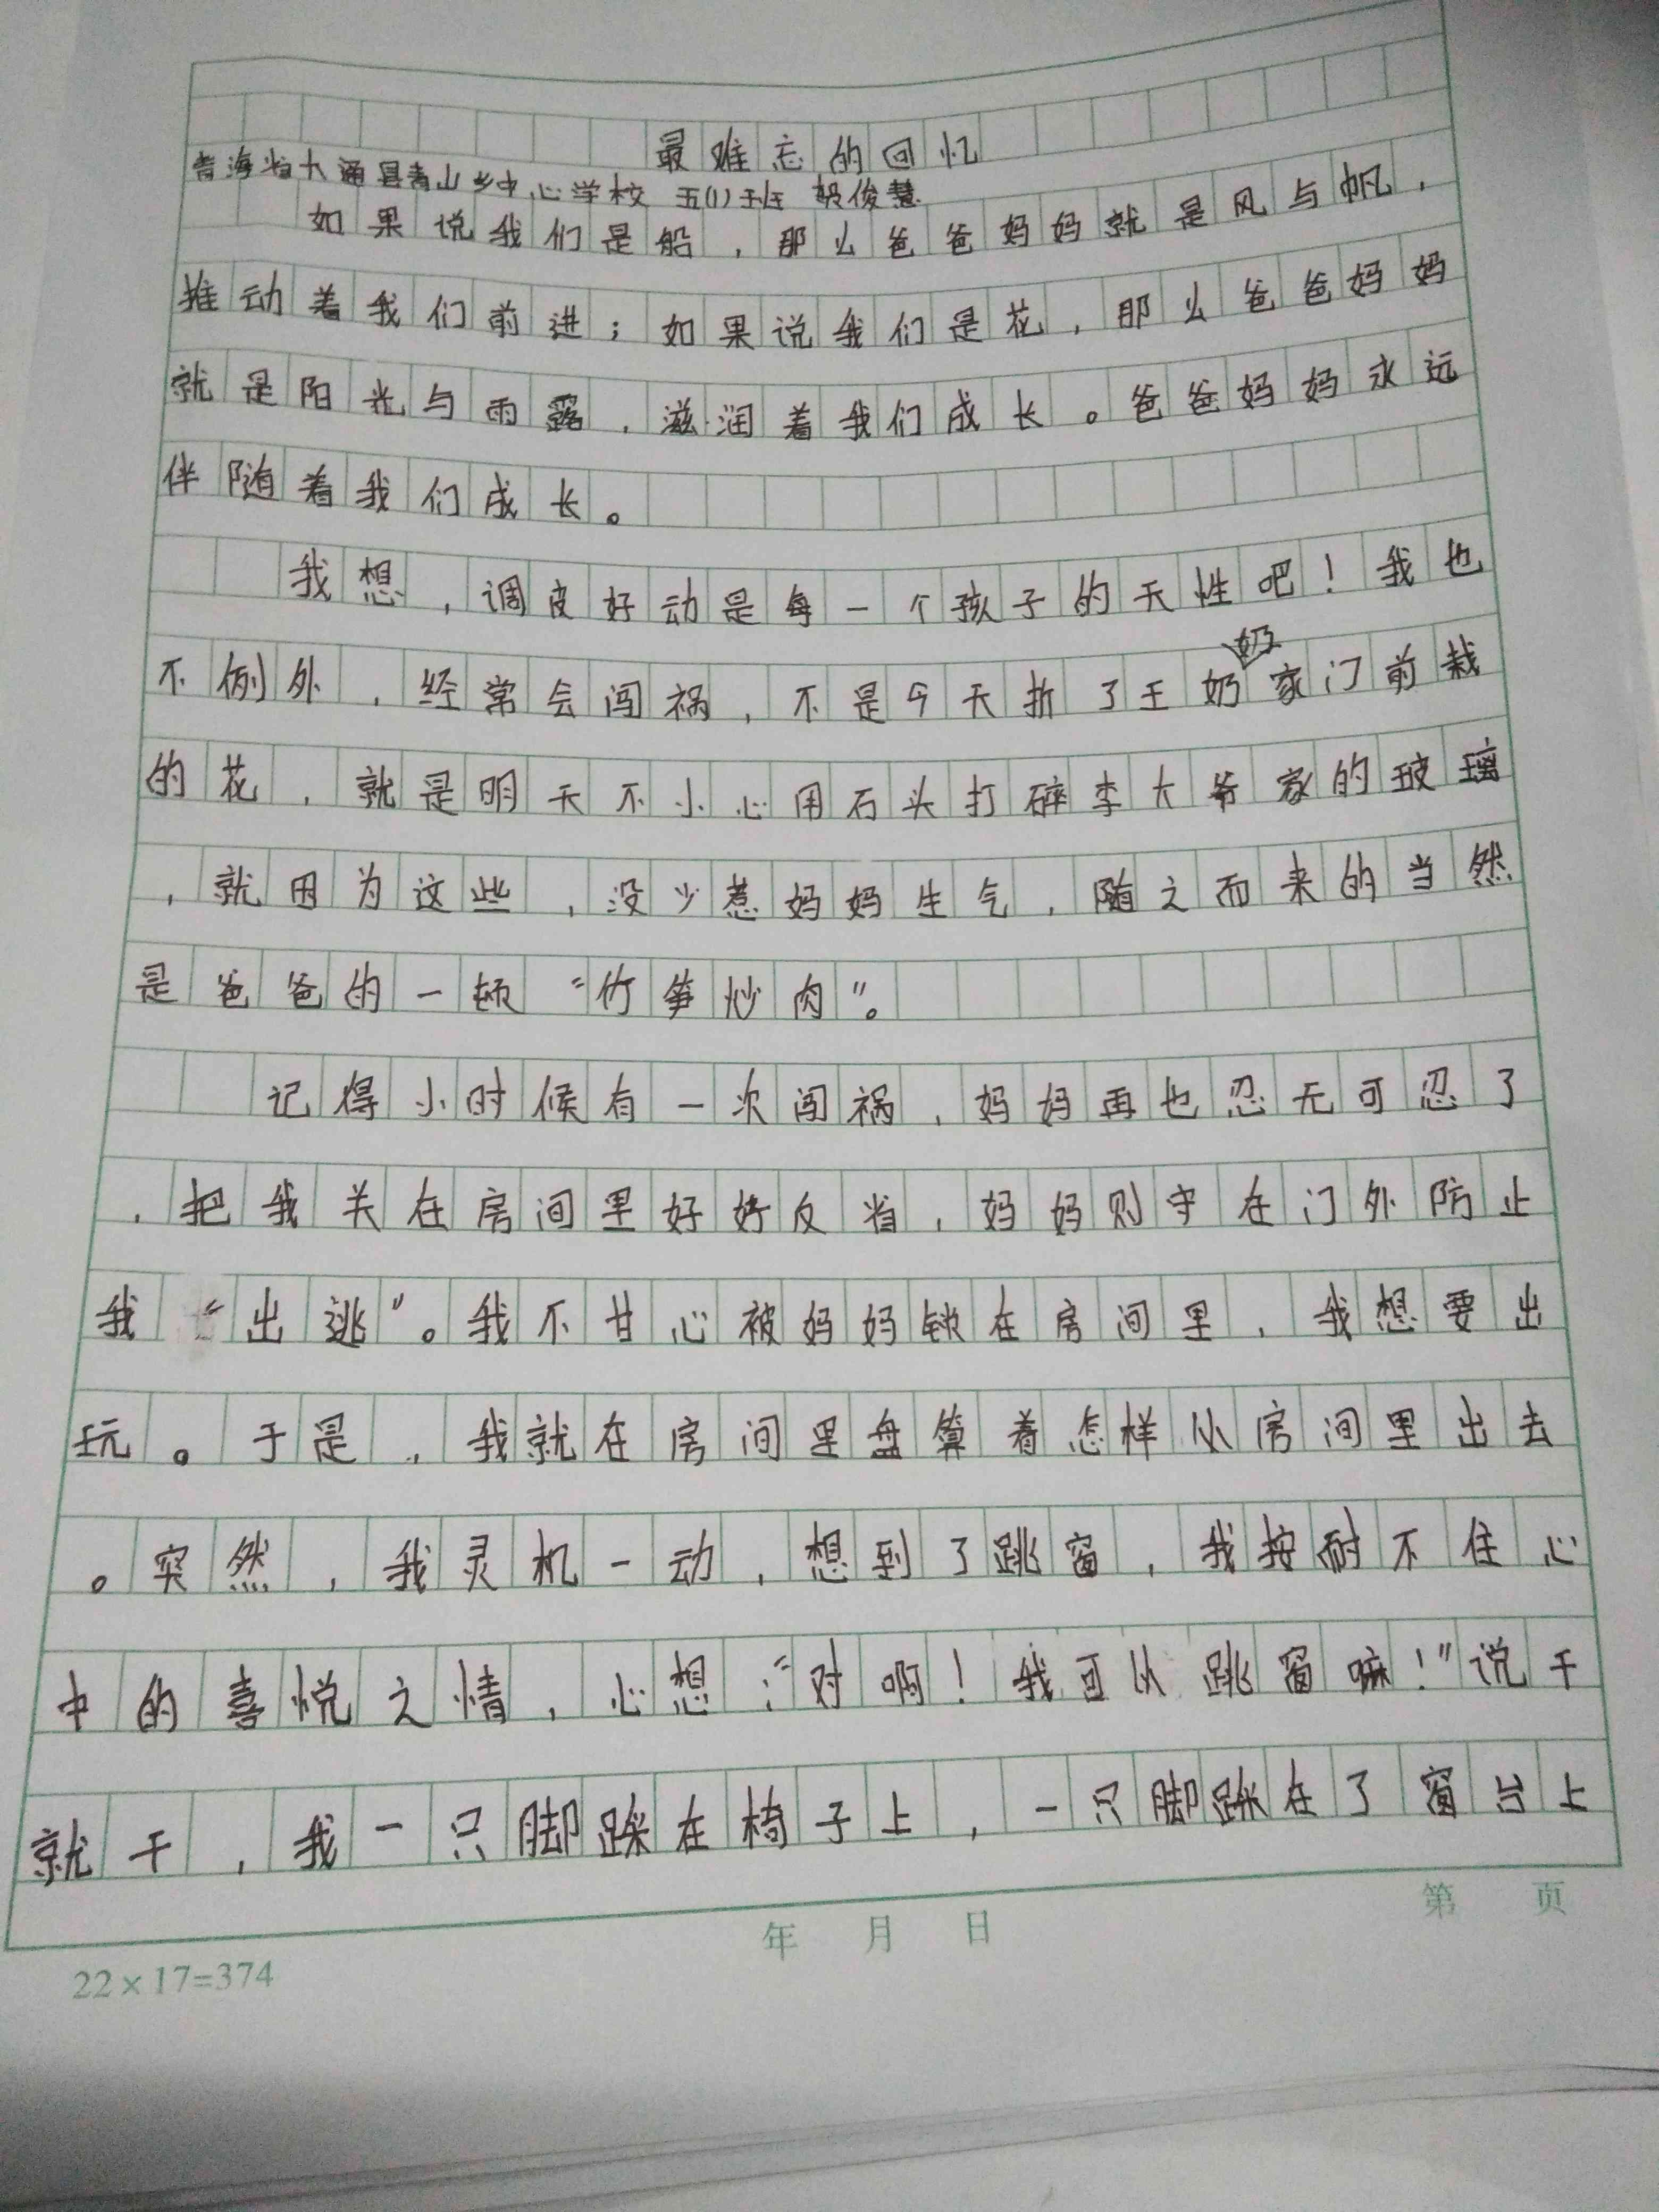 最难忘的回忆
青海省大通县青山乡中心学校 五(1)班 俊慧
如果说我们是船，那么爸爸妈妈就是风与帆，
推动着我们前进；如果说我们是花，那么爸爸妈妈
就是阳光与雨露，滋润着我们成长。爸爸妈妈永远
伴随着我们成长。
我想，调皮好动是每一个孩子的天性吧！我也
不例外，经常会闯祸，不是今天折了王奶奶家门前栽
的花，就是明天不小心用石头打碎李大爷家的玻璃
，就因为这些，没少惹妈妈生气，随之而来的当然
是爸爸的一顿“竹笋炒肉”。
记得小时候有一次闯祸，妈妈再也忍无可忍了
，把我关在房间里好好反省，妈妈则守在门外防止
我“出逃”。我不甘心被妈妈锁在房间里，我想要出
玩。于是，我就在房间里盘算着怎样从房间里出去
。突然，我灵机一动，想到了跳窗，我按耐不住心
中的喜悦之情，心想：“对啊！我可以跳窗嘛！”说干
就干，我一只脚踩在椅子上，一只脚踩在了窗台上
年 月 日 第 页
22×17=374